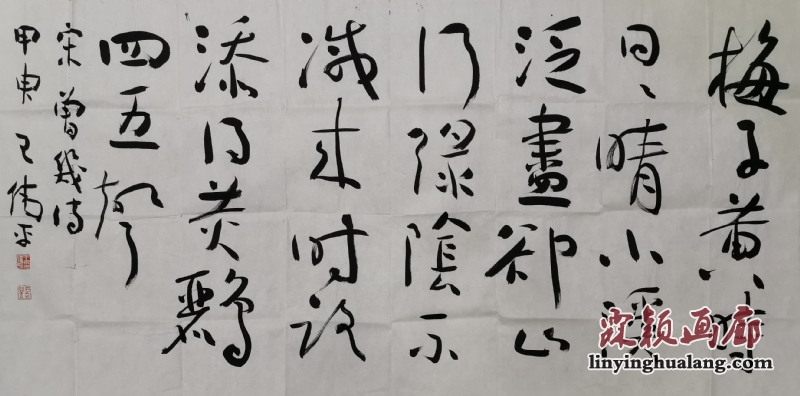 梅子黄时
日日晴小溪
泛盡卻山
行绿陰不
减来时路
添得黄鸝
四五聲
宋曾幾诗
甲申王伟平
颖画廊
linyinghualang.com